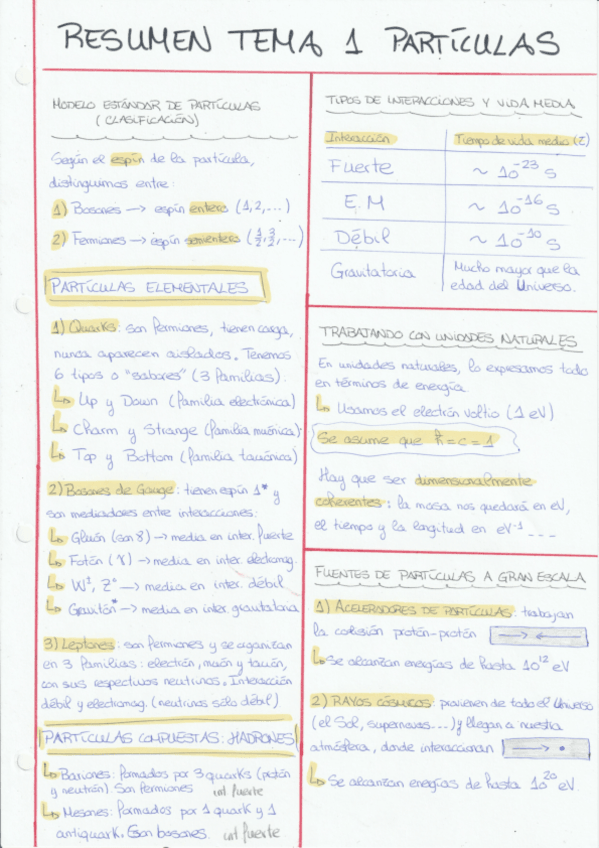 RESUMEN TEMA 1 PARTÍCULAS
MODELO ESTÁNDAR DE PARTÍCULAS
(CLASIFICACIÓN)
Según el espín de la partícula,
distinguimos entre:
1) Bosones → espín entero (1,2,...)
2) Fermiones → espín semientero (1/2, 3/2, ...)
PARTÍCULAS ELEMENTALES
1) Quarks: son fermiones, tienen carga,
nunca aparecen aislados. Tenemos
6 tipos o "sabores" (3 familias):
↳ Up y Down (familia electrónica)
↳ Charm y Strange (familia muónica)
↳ Top y Bottom (familia tauónica)
2) Bosones de Gauge: tienen espín 1* y
son mediadores entre interacciones:
↳ Gluón (son 8) → media en inter. fuerte
↳ Fotón (γ) → media en inter. electromag.
↳ W±, Z° → media en inter. débil
↳ Gravitón* → media en inter gravitatoria
3) Leptones: son fermiones y se organizan
en 3 familias: electrón, muón y tauón,
con sus respectivos neutrinos. Interacción
débil y electromag. (neutrinos sólo débil)
PARTÍCULAS COMPUESTAS: HADRONES
↳ Bariones: formados por 3 quarks (protón
y neutrón) Son fermiones int fuerte
↳ Mesones: Formados por 1 quark y 1
antiquark. Son bosones. int fuerte
TIPOS DE INTERACCIONES Y VIDA MEDIA
Interacción Tiempo de vida media (τ)
Fuerte ~ 10⁻²³ s
E.M ~ 10⁻¹⁶ s
Débil ~ 10⁻¹⁰ s
Gravitatoria Mucho mayor que la
edad del Universo.
TRABAJANDO CON UNIDADES NATURALES
En unidades naturales, lo expresamos todo
en términos de energía.
↳ Usamos el electrón voltio (1 eV)
Se asume que ħ = c = 1
Hay que ser dimensionalmente
coherentes: la masa nos quedará en eV,
el tiempo y la longitud en eV⁻¹ ...
FUENTES DE PARTÍCULAS A GRAN ESCALA
1) ACELERADORES DE PARTÍCULAS: trabajan
la colisión protón-protón → ←
↳ Se alcanzan energías de hasta 10¹² eV
2) RAYOS CÓSMICOS: provienen de todo el Universo
(el Sol, supernovas...) y llegan a nuestra
atmósfera, donde interaccionan → •
↳ Se alcanzan energías de hasta 10²⁰ eV.